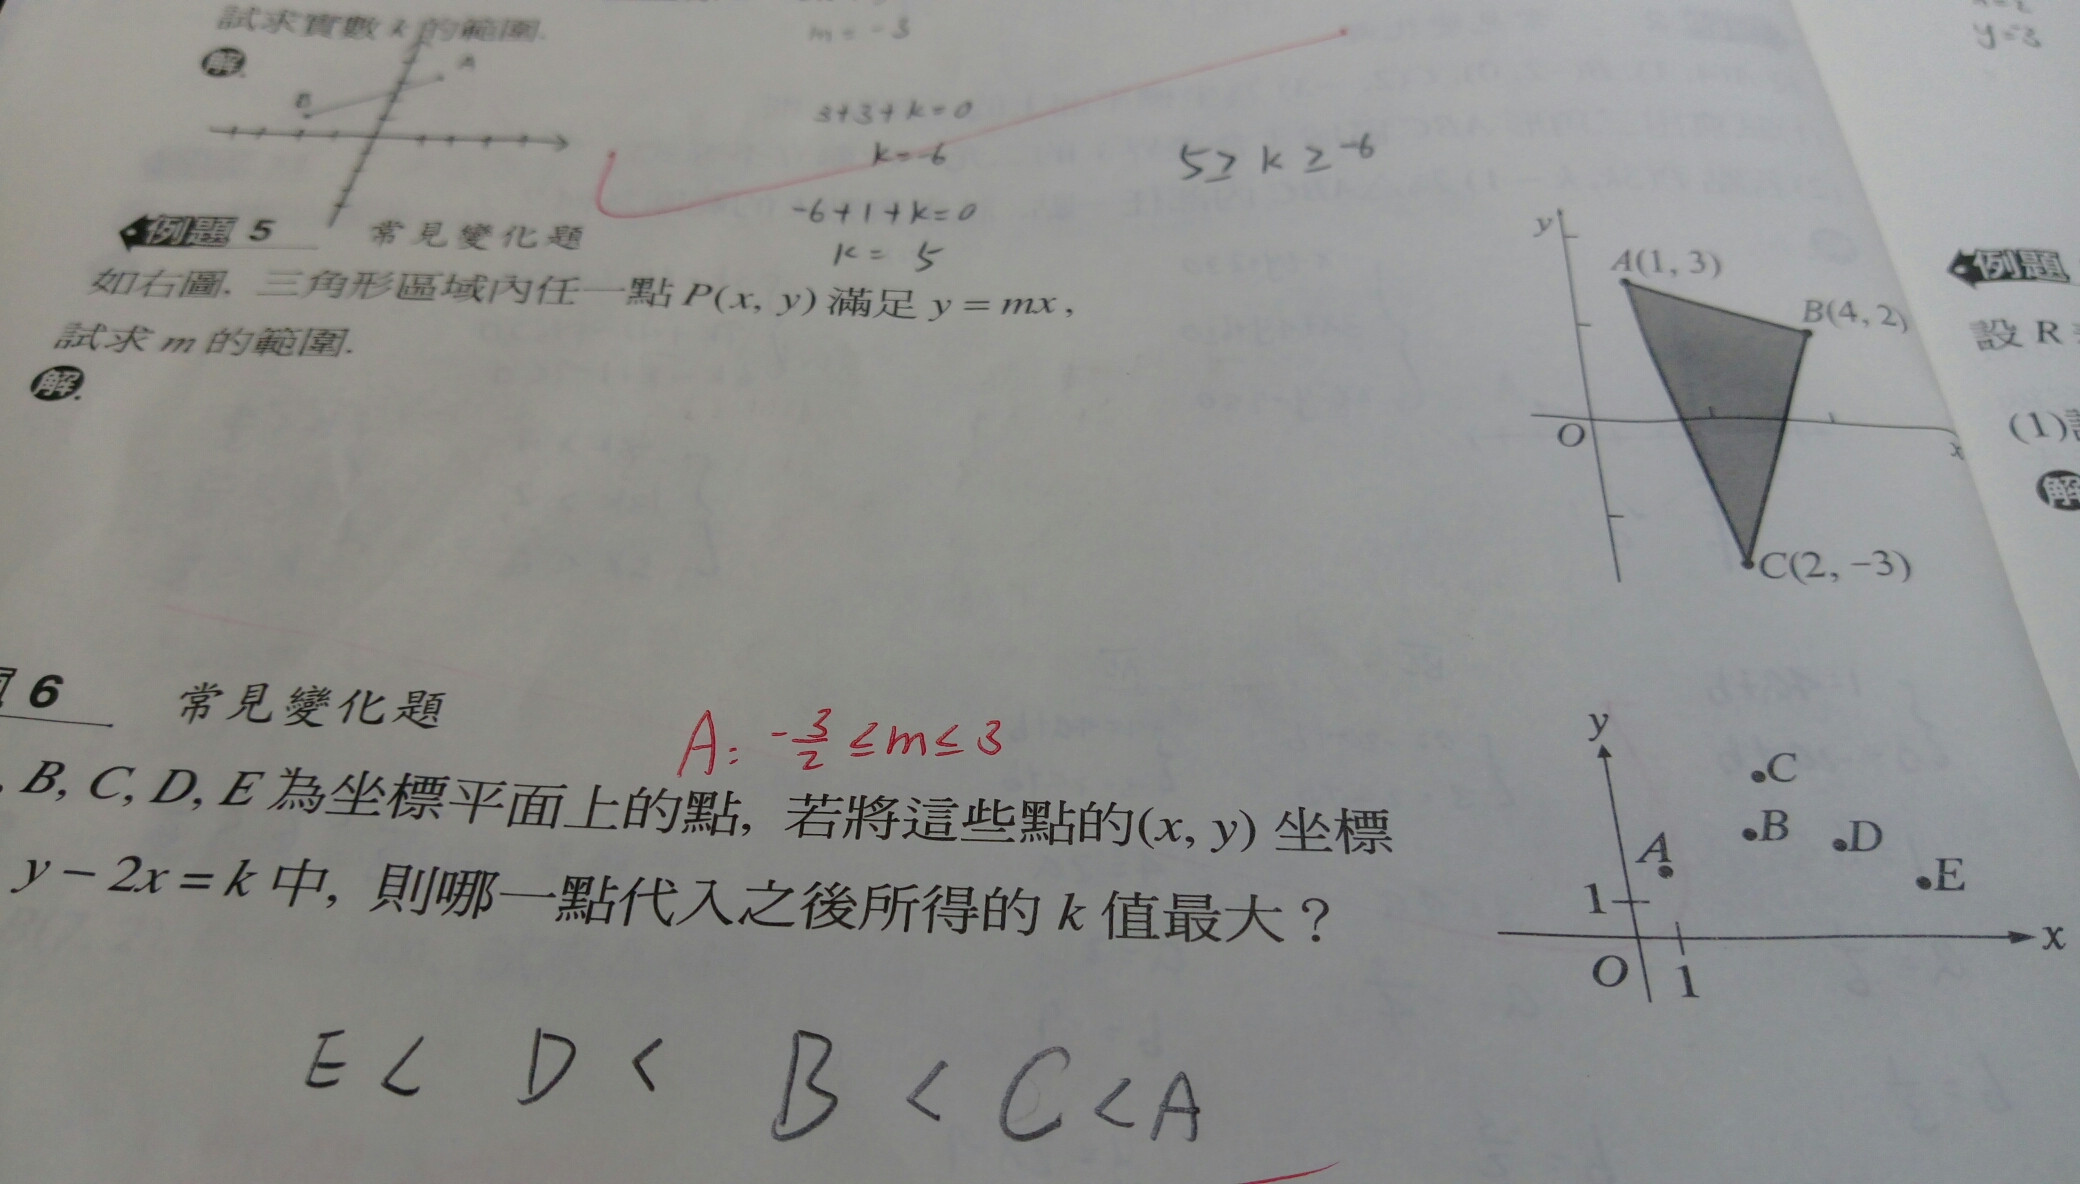 試求實數 k 的範圍.
m = -3
y=3
解.
A
B
3+3+k=0
k=-6
-6+1+k=0
k= 5
5≥ k ≥ -6
例題 5 常見變化題
如右圖, 三角形區域內任一點 P(x, y) 滿足 y = mx,
試求 m 的範圍.
解.
y
A(1, 3)
B(4, 2)
O
x
C(2, −3)
例題
設 R
(1)
解
6 常見變化題
A: -3/2 ≤ m ≤ 3
B, C, D, E 為坐標平面上的點, 若將這些點的(x, y) 坐標
y − 2x = k 中, 則哪一點代入之後所得的 k 值最大？
y
C
B
D
A
E
1
x
O
1
E < D < B < C < A